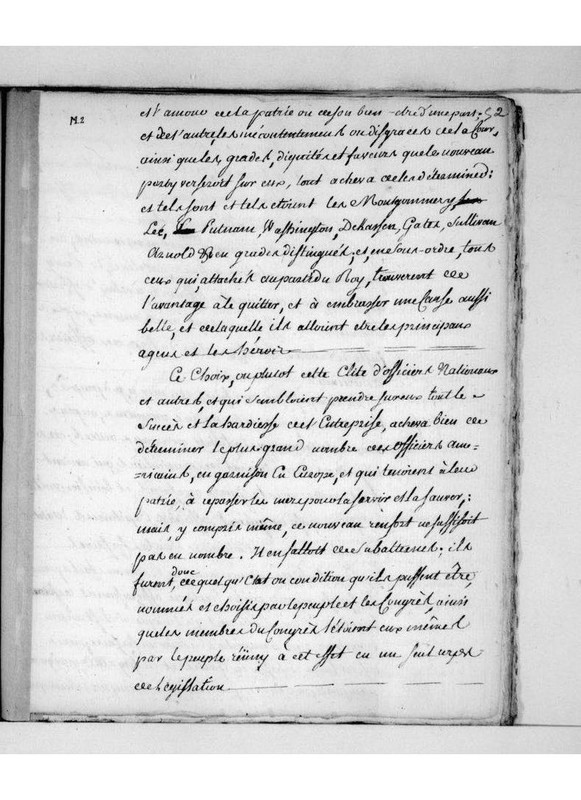 N.2
52
et l'amour de la patrie ou de son bien-être d'une part;
et de l'autre, les mécontentement ou disgraces de la Cour,
ainsi que les grades, dignités et faveurs que le nouveau
party versoit sur eux, tout acheva de les déterminer:
et tels sont et tels étoient les Montgommery
Lee, Putnam Washington, Gates, Sullivan
Arnold en grades distingués; et, en sous-ordre, tous
ceux qui, attachés au parti du Roy, trouverent de
l'avantage à le quitter, et à embrasser une Cause aussi
belle, et de laquelle ils alloient être les principaux
agens et les héros.
Ce Choix, ou plutot cette Elite d'officiers Nationaux
et autres, et qui sembloient prendre sur eux tout le
Succès et la hardiesse de l'Entreprise, acheva bien de
déterminer le plus grand nombre des officiers ame=
=ricains, en garnison En Europe, et qui tenoient à leur
patrie, à repasser les mers pour la servir et la sauver;
mais, y compris même, ce nouveau renfort ne suffisoit
pas en nombre. Il en falloit de subalternes: ils
furent donc, de quelqu'Etat ou condition qu'ils pussent être,
nommés et choisis par le peuple et les Congrès, ainsi
que les membres du Congrès l'étoient eux mêmes
par le peuple réüny à cet effet en un seul corps
de Législation